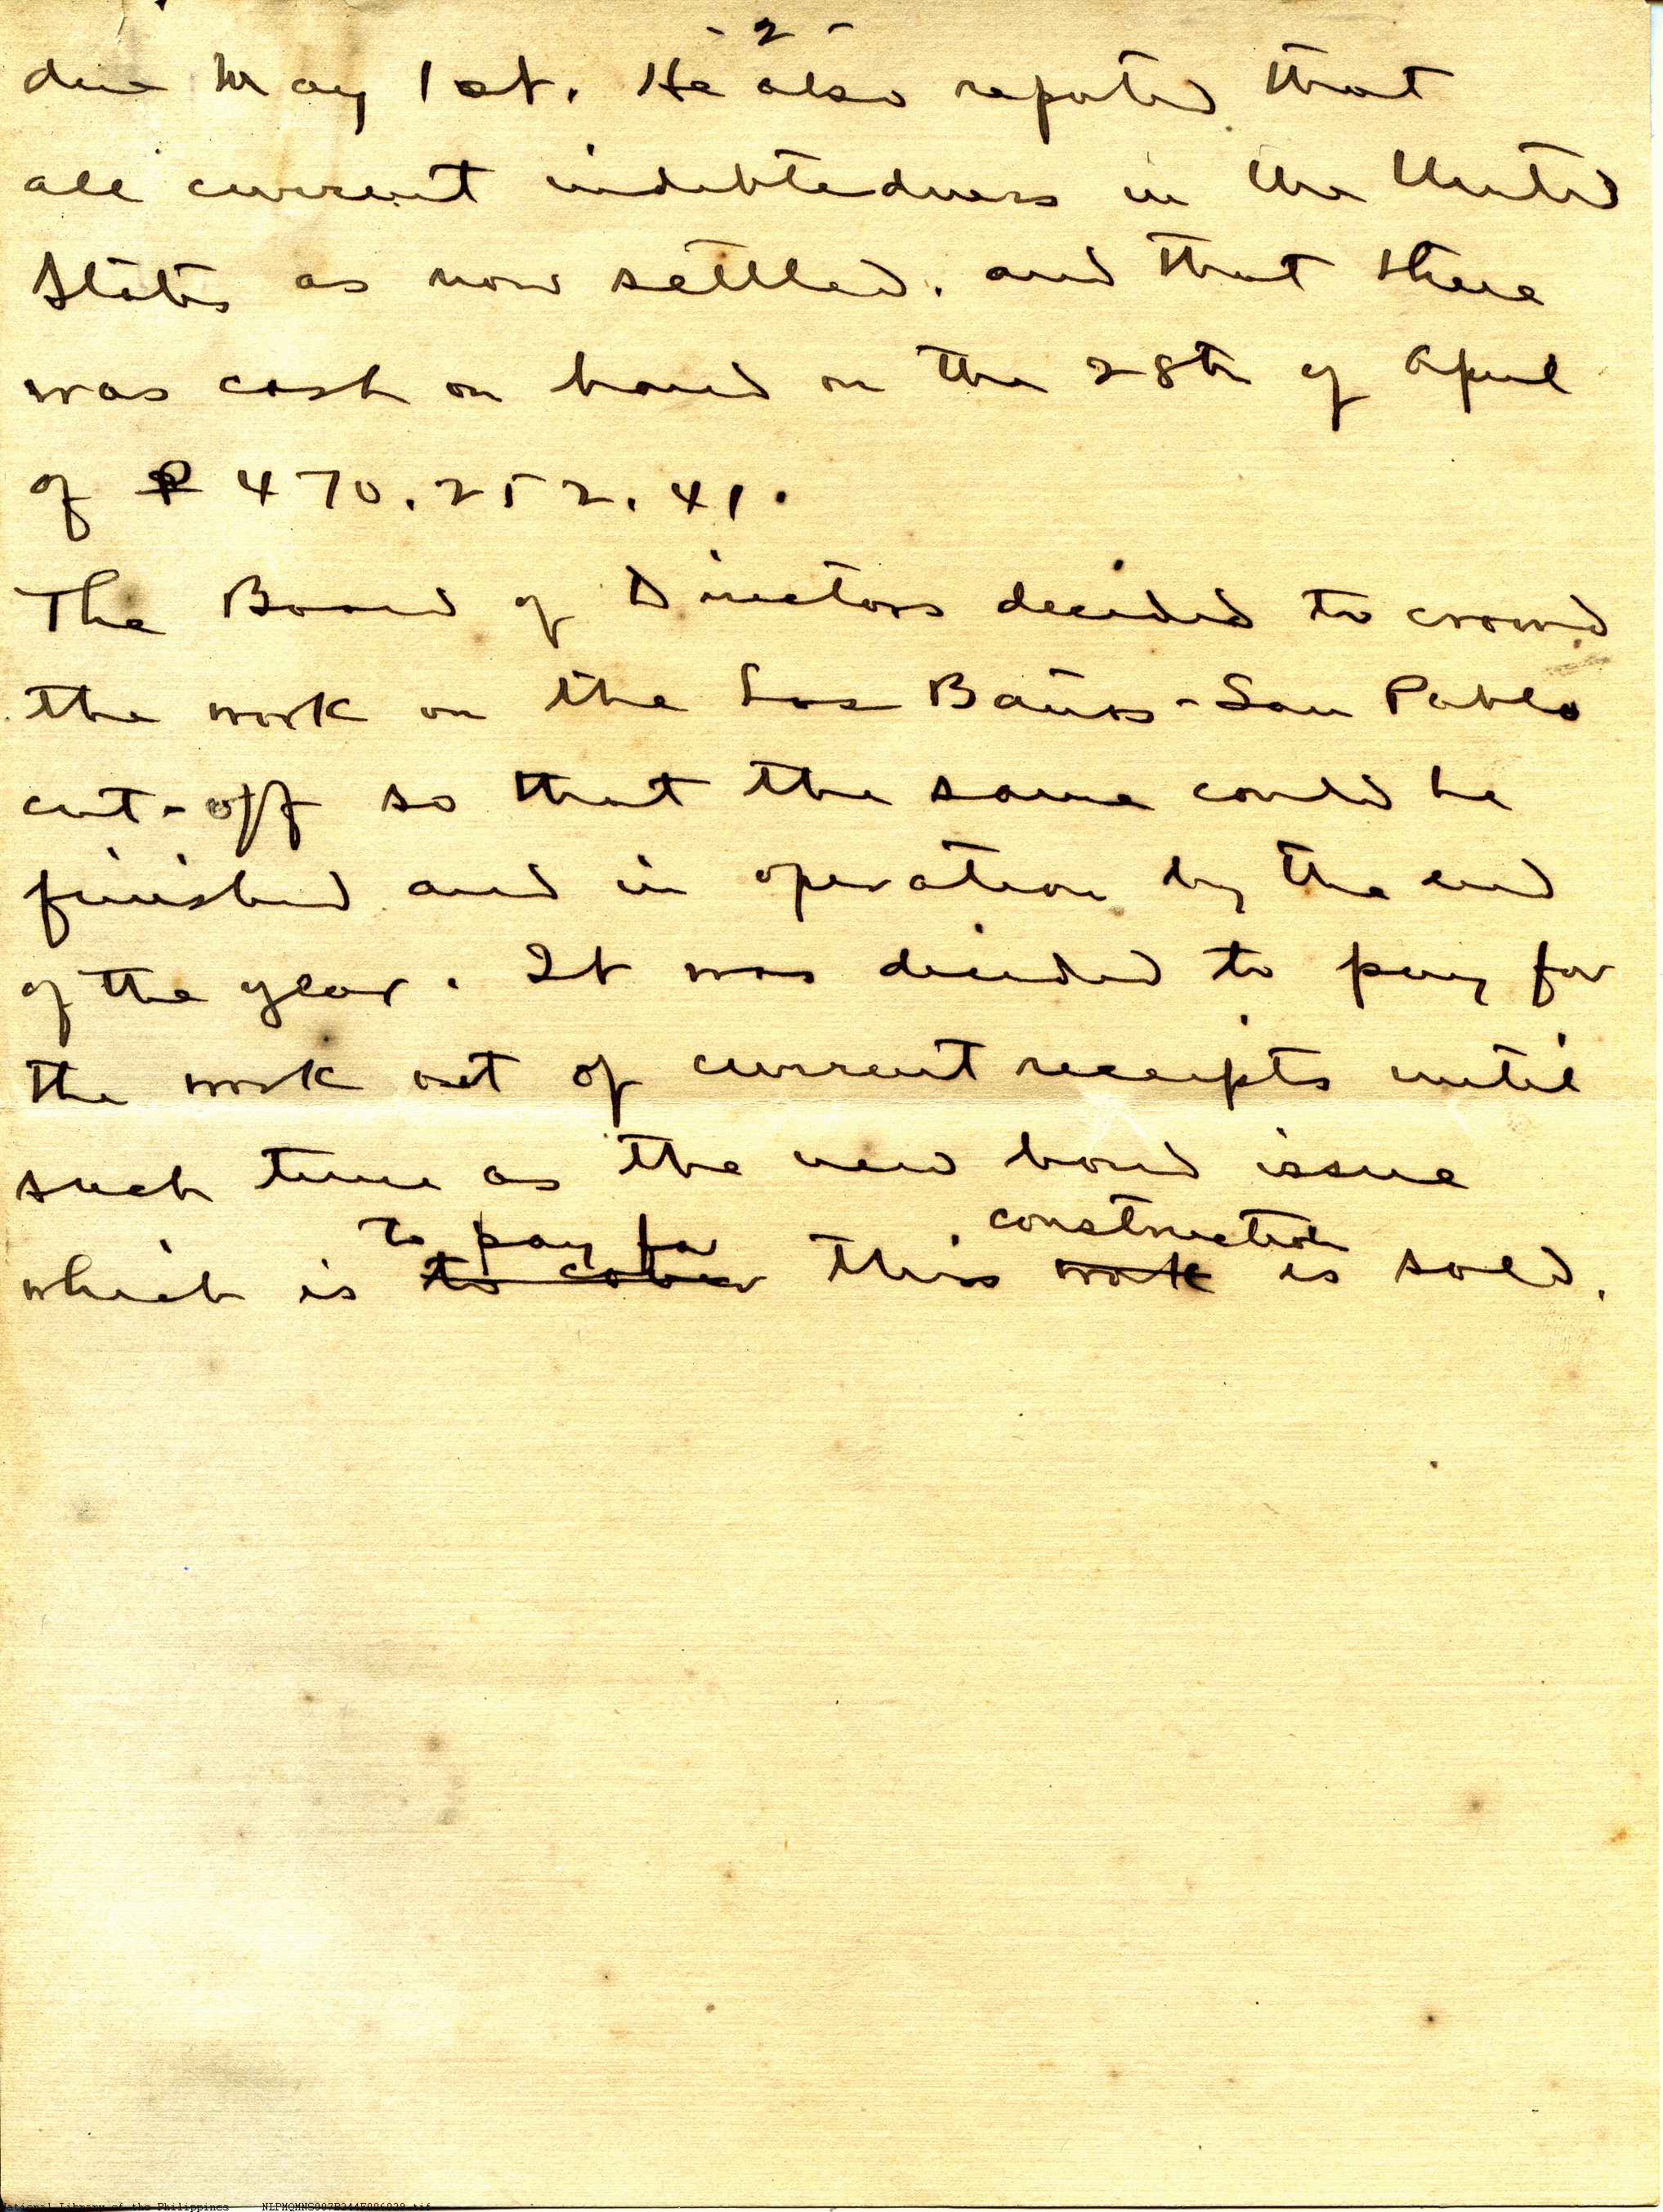 - 2 -
due May 1st. He also reported that
all current indebtedness in the United
States as now settled. and that there
was cash on hand on the 28th of April
of ₱ 470.252.41.
The Board of Directors decided to crowd
the work on the Los Baños-San Pablo
cut-off so that the same could be
finished and in operation by the end
of the year. It was decided to pay for
the work out of current receipts until
such time as the new bond issue
to pay for construction
which is to cover this work is sold.
National Library of the Philippines